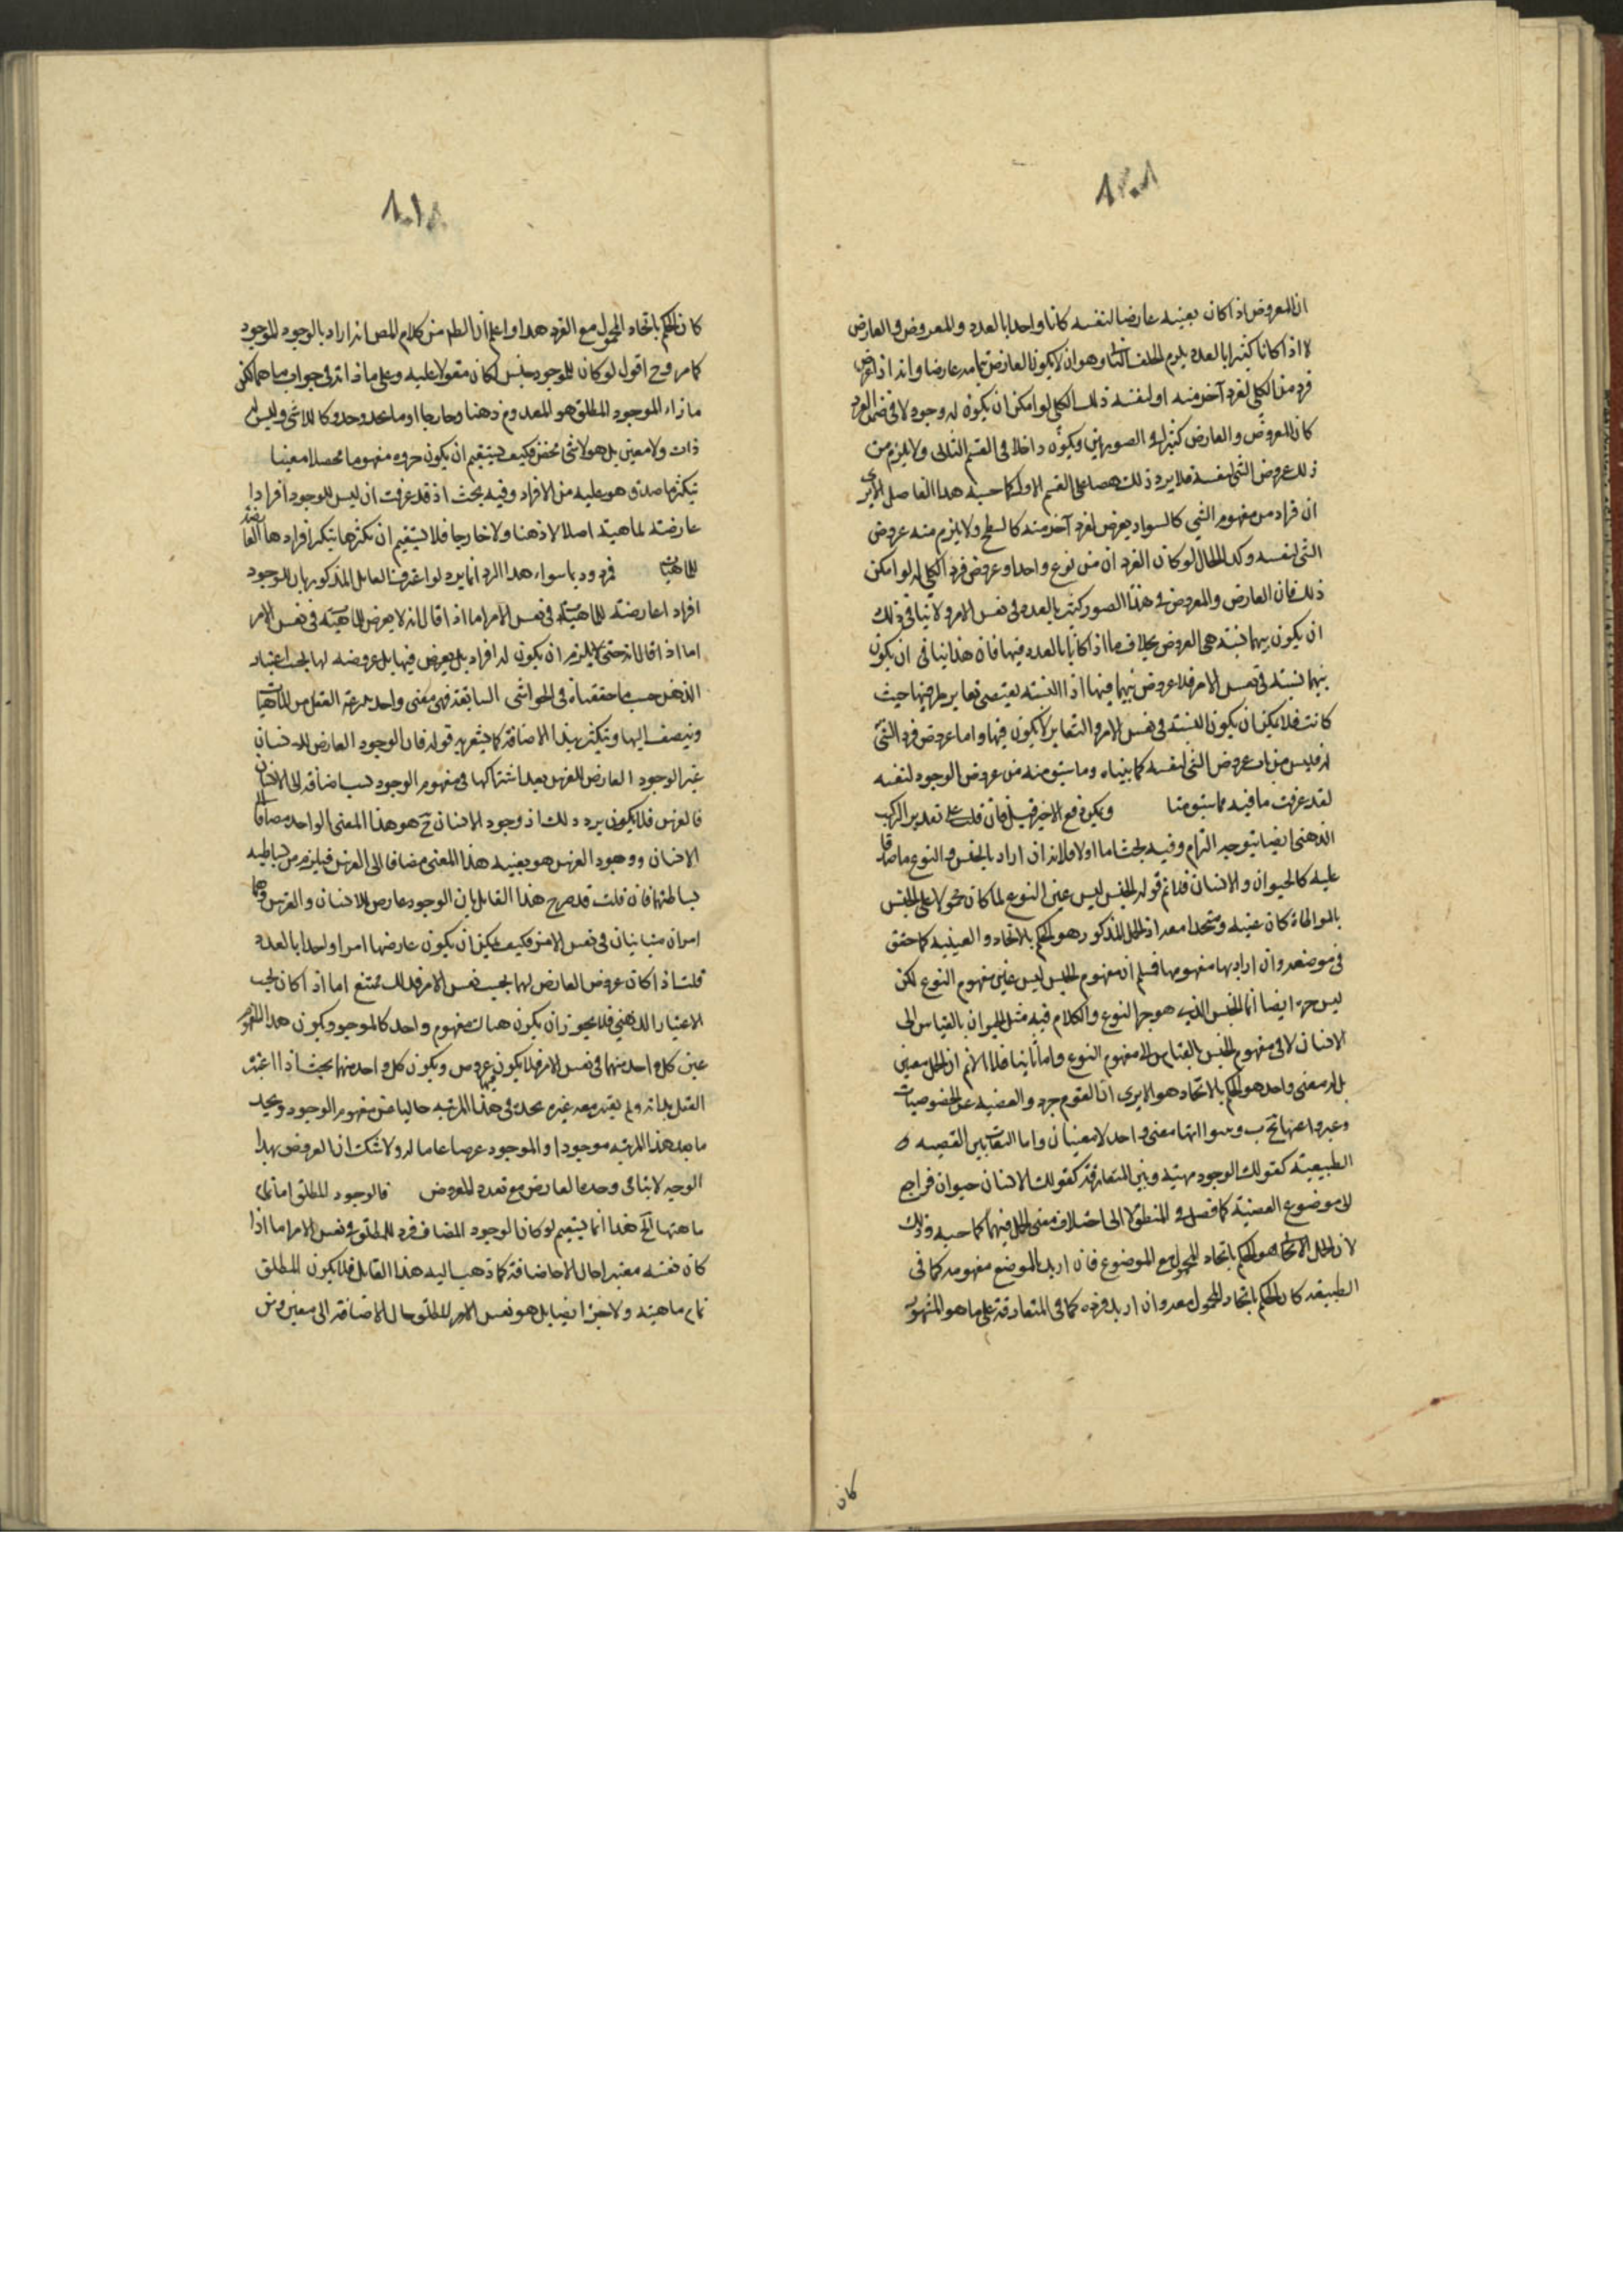 ان المعروض اذا كان بعينه عارضا لنفسه كانا واحدا بالعدد والمعروض والعارض
لا اذا كانا كثيرا بالعدد يلزم الخلف وهو ان لا يكون العارض بتمامه عارضا وانه اذا عرض
فرد من الكلى لفرد آخر منه او لنفسه ذلك الكلى لو امكن ان يكون له وجود لا فى ضمن الفرد
كان المعروض والعارض كثيرا فى الصورتين ويكون داخلا فى القسم الثانى ولا يلزم من
ذلك عروض الشى لنفسه فلا يرد ذلك على القسم الاول كما حسبه هذا الفاضل الا يرى
ان فرادا من مفهوم الشى كالسواد يعرض لفرد آخر منه كالسطح ولا يلزم منه عروض
الشى لنفسه وكذا الحال لو كان الفرد ان من نوع واحد او عروض فرد الكلى له لو امكن
ذلك فان العارض والمعروض فى هذه الصور كثير بالعدد فى نفس الامر ولا ينافى ذلك
ان يكون بينهما نسبة هى العروض بخلاف ما اذا كانا بالعدد فيها فان هذا ينافى ان يكون
بينهما نسبة فى نفس الامر فلا عروض بينهما فيها اذ النسبة يقتضى تغاير طرفيها حيث
كانت فلا يمكن ان يكون النسبة فى نفس الامر والتغاير لا يكون فيها واما عروض فرد الشئ
له فليس من باب عروض الشى لنفسه كما بيناه وما سبق منه من عروض الوجود لنفسه
لقد عرفت ما فيه مما سبق منا ويمكن دفع الاخير قيل فان قلت على تقدير التركيب
الذهنى ايضا يتوجه الترام وفيه بحث اما اولا فلانه ان اراد بالجنس والنوع ما صدقا
عليه كالحيوان والانسان فلانم قوله الجنس ليس عين النوع لما كان محمولا على الجنس
بالمواطاة كان عينه ومتحدا معه اذ الحمل المذكور هو الحكم بالاتحاد والعينيه كما حقق
فى موضعه وان اراد بها مفهومها فسلم ان مفهوم الجنس ليس عين مفهوم النوع لكن
ليس جزءه ايضا انما الجنس الذى هو جزء النوع والكلام فيه مثل الحيوان بالقياس الى
الانسان لا فى مفهوم الجنس بالقياس الى مفهوم النوع واما ثانيا فلانا لا نم ان للحمل معنيين
بل له معنى واحد هو الحكم بالاتحاد هو الا يرى ان القوم جردوا القضيه عن الخصوصيات
وعبروا عنها بج ب وبينوا انها معنى واحد لا معنيان واما التفاوت بين القضيه
الطبيعية كقولك الوجود مهيته وبين المتعارفة كقولك الانسان حيوان فراجع
الى موضوع القضية كما فصل فى المنطق لا الى اختلاف معنى الحمل فيهما كما حسبه وذلك
لان الحمل الاتحاد هو الحكم باتحاد المحمول مع الموضوع فان اريد بالموضوع مفهومه كما فى
الطبيعة كان الحكم باتحاد المحمول معه وان اريد فرده كما فى المتعارفة على ما هو المشهور
كان
كان الحكم باتحاد المحمول مع الفرد هذا واعلم ان الظم من كلام المص انه اراد بالوجود الموجود
كما مر وح اقول لو كان للموجود جنس لكان مقولا عليه وعلى ما ذاته فى جواب ما هما لكن
ما زاء الموجود المطلق هو المعدوم ذهنا وخارجا او ما يحذو حذوه كاللاشى وليس له
ذات ولا معين بل هو لا شئ محض فكيف يستقيم ان يكون جزوه مفهوما محصلا معينا
تكثر ما صدق هو عليه من الافراد وفيه بحث اذ قد عرفت ان ليس للوجود افرادا
عارضة لماهية اصلا لا ذهنا ولا خارجا فلا يستقيم ان تكثرها بتكثر افرادها العارضة
للماهيات فردود با سواء هذا الرد انما يرد لو اعترف القايل المذكور بان للوجود
افراد اعارضة للماهية فى نفس الامر اما اذا قال انه لا يعرض للماهية فى نفس الامر
اما اذا قال انه حتى لا يلزم ان يكون له افراد بل يعرض فيها بل عروضه لها بحسب اعتبار
الذهن حسب ما حققناه فى الحواشى السابقة فهى معنى واحد العقل من الماهيات
ويضيف اليها ويتكثر بهذا الاضافة كما يشعر به قوله فان الوجود العارض للانسان
غير الوجود العارض للفرس بعد اشتراكها فى مفهوم الوجود بسبب اضافته الى الانسان
فالفرس فلا يكون يرد ذلك اذ وجود الانسان ح هو هذا المعنى الواحد مضافا الى
الانسان ووجود الفرس هو بعينه هذا المعنى مضافا الى الفرس فيلزم من بساطته
بساطتها فان قلت قد صرح هذا القايل بان الوجود عارض للانسان والفرس وهما
امران متباينان فى نفس الامر فكيف يمكن ان يكون عارضها امرا واحدا بالعدد
قلت اذا كان عروض العارض لهما بحسب نفس الامر فذلك ممتنع اما اذا كان بحسب
الاعتبار الذهنى فلا يجوز ان يكون هناك مفهوم واحد كالموجود ويكون هذا المفهوم
عين كل واحد منهما فى نفس الامر فلا يكون عروض ويكون كل واحد منهما بحيث اذا اعتبره
العقل بذاته ولم يعتبر معه غيره يجده فى هذا المرتبه خاليا عن مفهوم الوجود ويجد
ما بعد هذا المرتبه موجودا والموجود عرضا عاما له ولا شك ان العروض بهذا
الوجه لا ينافى وحدة العارض مع تعدد المعروض فالوجود المطلق اما تمام
ماهيتها الخ هذا انما يستقيم لو كان الوجود المضاف فرد المطلق فى نفس الامر اما اذا
كان نفسه معتبرا حال الاضافة كما ذهب اليه هذا القايل فلا يكون المطلق
تمام ماهيته ولا جزءا ايضا بل هو نفس الامر المطلق حال الاضافة الى معين ومن